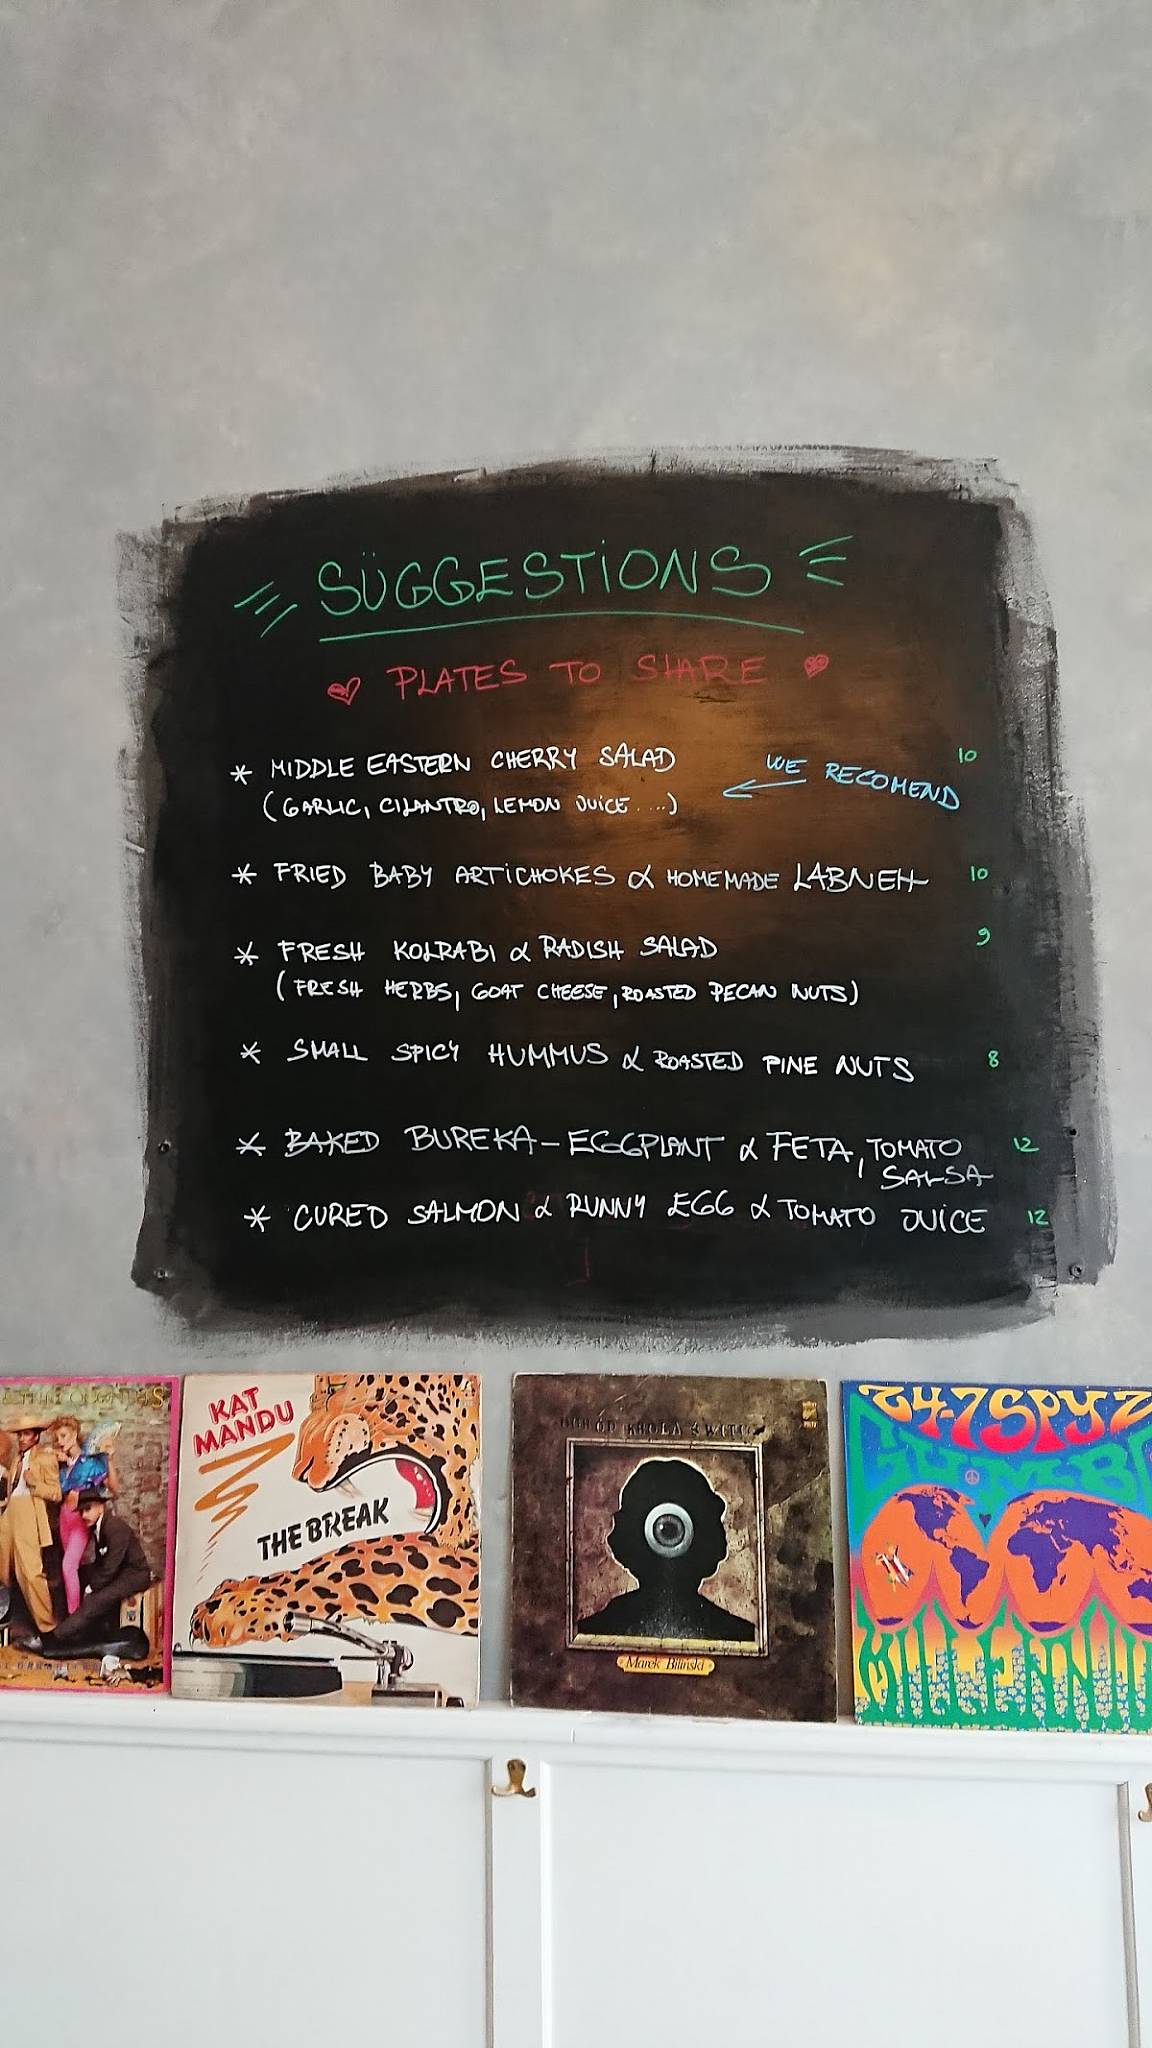 SÜGGESTIONS
PLATES TO SHARE
* MIDDLE EASTERN CHERRY SALAD 10
(GARLIC, CILANTRO, LEMON JUICE ....)
WE RECOMEND
* FRIED BABY ARTICHOKES & HOMEMADE LABNEH 10
* FRESH KOLRABI & RADISH SALAD 9
(FRESH HERBS, GOAT CHEESE, ROASTED PECAN NUTS)
* SMALL SPICY HUMMUS & ROASTED PINE NUTS 8
* BAKED BUREKA - EGGPLANT & FETA, TOMATO 12
SALSA
* CURED SALMON & RUNNY EGG & TOMATO JUICE 12
KAT
MANDU
THE BREAK
Marek Biliński
24-7 SPYZ
GUMBO
MILLENNIU